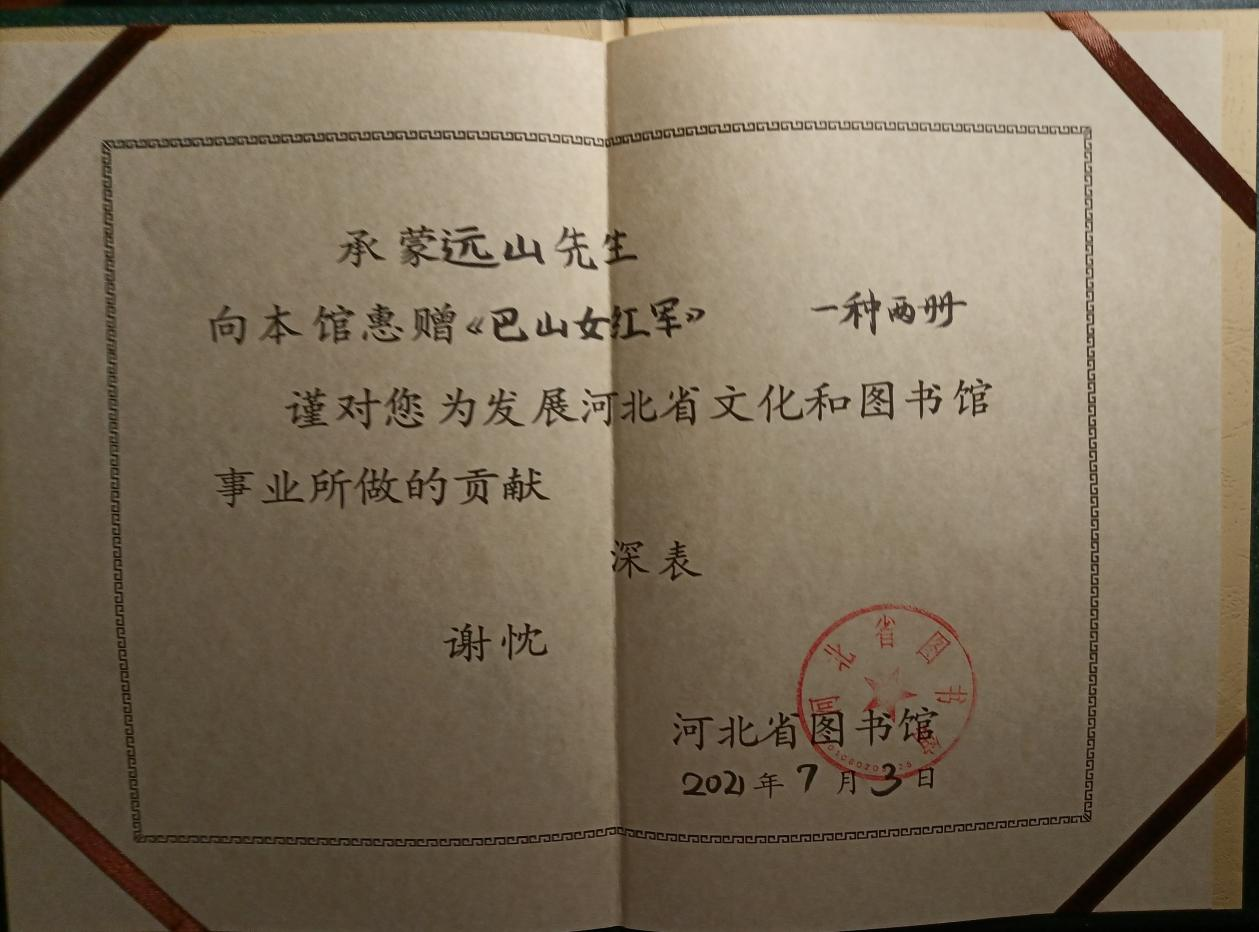 承蒙远山先生
向本馆惠赠《巴山女红军》 一种两册
谨对您为发展河北省文化和图书馆
事业所做的贡献
深表
谢忱
河北省图书馆
2021年7月3日
河北省图书馆